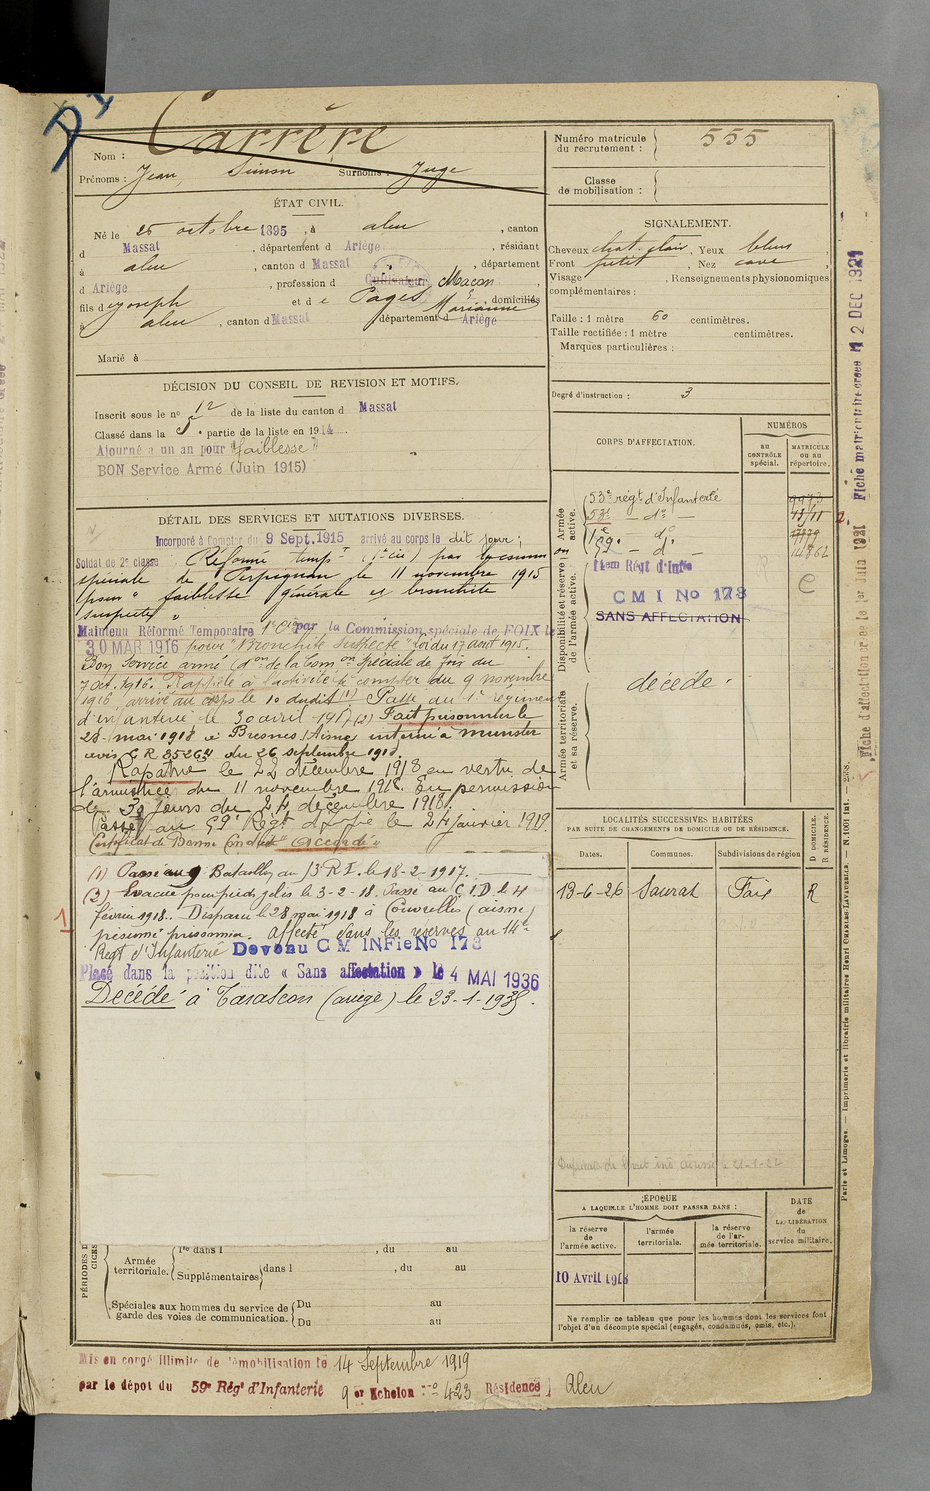 Carrère
Nom :
Prénoms : Jean, Simon Surnoms : Juge
ÉTAT CIVIL.
Né le 25 octobre 1895, à aleu, canton
d Massat, département d Ariège, résidant
à aleu, canton d Massat, département
d Ariège, profession d Cultivateur Maçon
fils d joseph et de Pagès Marianne, domiciliés
à aleu, canton d Massat département d Ariège
Marié à
DÉCISION DU CONSEIL DE REVISION ET MOTIFS.
Inscrit sous le no 12 de la liste du canton d Massat
Classé dans la 5e partie de la liste en 1914.
Ajourné a un an pour "faiblesse"
BON Service Armé (Juin 1915)
DÉTAIL DES SERVICES ET MUTATIONS DIVERSES.
Incorporé à Compter du 9 Sept. 1915 arrivé au corps le dit jour ;
Soldat de 2e classe Réformé temp.re (1ère cie) par la comm
spéciale de Perpignan le 11 novembre 1915
pour " faiblesse générale et bronchite
suspecte "
Maintenu Réformé Temporaire par la Commission spéciale de FOIX le
30 MAR 1916 pour "Bronchite Suspecte" loi du 17 août 1915.
Bon Service armé (don de la Com on Spéciale de Foix du
7 oct. 1916. Rappelé à l'activité à compter du 9 novembre
1916 arrivé au corps le 10 dudit (1) Passé au 1e régiment
d'infanterie le 30 avril 1917 (2) Fait prisonnier le
28 mai 1918 à Bresnes (Aisne) interné à Munster
avis G R 85264 du 26 septembre 1918.
Rapatrié le 22 décembre 1918 en vertu de
l'armistice du 11 novembre 1918. En permission
de 30 jours du 24 décembre 1918.
Passé au 59e Régt d'Infie le 24 janvier 1919.
Certificat de Bonne Conduite "accordé"
(1) Passé au 9 Bataillon du 53 R I. le 18-2-1917.
(2) Evacué pour pieds gelés le 3-2-18. Passé au C.I.D le 4
1
février 1918. Disparu le 28 mai 1918 à Couvrelles (aisne)
présumé prisonnier. Affecté dans les réserves au 14e
Régt d'Infanterie Devenu C M INFie No 178
Placé dans la position dite « Sans affectation » le 4 MAI 1936
Décédé à Tarascon (ariège) le 23-1-1938.
PÉRIODES D
Armée territoriale. 1re dans l , du au
Supplémentaires dans l , du au
Spéciales aux hommes du service de garde des voies de communication. Du au
Du au
Mis en congé illimité de démobilisation le 14 Septembre 1919
par le dépôt du 59e Régt d'Infanterie 9er Echelon No 423 Résidence Aleu
Numéro matricule du recrutement : 555
Classe de mobilisation :
SIGNALEMENT.
Cheveux chat. clair, Yeux bleus
Front petit, Nez cave,
Visage , Renseignements physionomiques
complémentaires :
Taille : 1 mètre 60 centimètres.
Taille rectifiée : 1 mètre centimètres.
Marques particulières :
Degré d'instruction : 3
CORPS D'AFFECTATION.
NUMÉROS
au CONTRÔLE spécial.
MATRICULE ou au répertoire.
Armée active.
53e régt d'Infanterie
53e — do —
1e do
59e — d°
14862
Disponibilité et réserve de l'armée active.
14em Régt d'Infie
C M I No 178
SANS AFFECTATION
Armée territoriale et sa réserve.
décédé.
LOCALITÉS SUCCESSIVES HABITÉES
PAR SUITE DE CHANGEMENTS DE DOMICILE OU DE RÉSIDENCE.
D DOMICILE. R RÉSIDENCE.
Dates. Communes. Subdivisions de région
13-6-26 Saurat Foix R
ÉPOQUE
A LAQUELLE L'HOMME DOIT PASSER DANS :
DATE de LA LIBÉRATION du service militaire.
la réserve de l'armée active.
l'armée territoriale.
la réserve de l'armée territoriale.
10 Avril 1918
Ne remplir ce tableau que pour les hommes dont les services font
l'objet d'un décompte spécial (engagés, condamnés, omis, etc.).
Fiche d'affectation créée le 1er Juin 1921 Fiche matriculaire créée le 12 DEC 1921
Paris et Limoges. — Imprimerie et librairie militaires Henri CHARLES-LAVAUZELLE. — N.1001 int. — 2378.